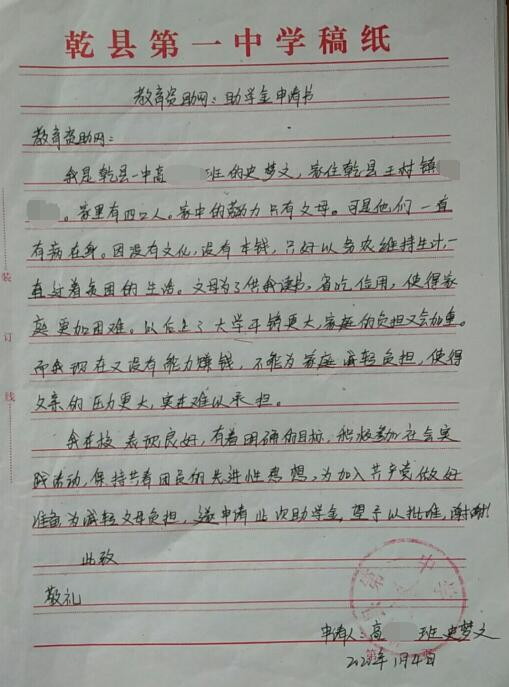 乾县第一中学稿纸
教育资助网：助学金申请书
教育资助网：
我是乾县一中高 班的史梦文，家住乾县王村镇
。家里有四口人。家中的劳动力只有父母。可是他们一直
有病在身。因没有文化，没有本钱，只好以务农维持生计，一
直过着贫困的生活。父母为了供我读书，省吃俭用，使得家
庭更加困难。以后上了大学开销更大，家庭的负担又会加重。
而我现在又没有能力赚钱，不能为家庭减轻负担，使得
父亲的压力更大，实在难以承担。
我在校表现良好，有着明确的目标，积极参加社会实
践活动，保持共青团员的先进性思想，为加入共产党做好
准备为减轻父母负担，遂申请此次助学金，望予以批准，谢谢！
此致
敬礼
申请人：高 班史梦文
1月4日
装
订
线